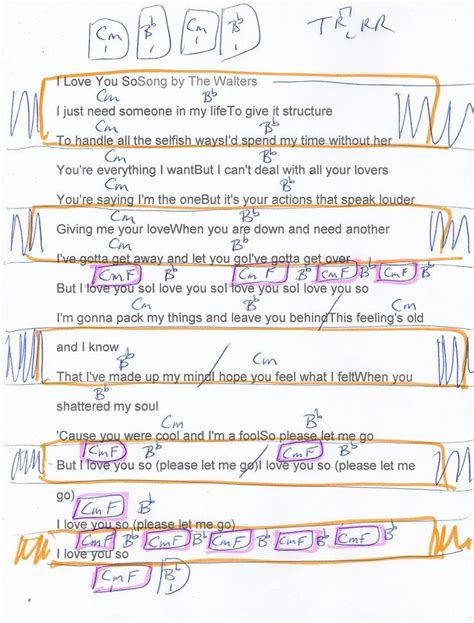 Cm Bb Cm Bb TR RR
I I
I Love You SoSong by The Walters
Cm Bb
I just need someone in my lifeTo give it structure
Cm Bb
To handle all the selfish waysI'd spend my time without her
Cm Bb
You're everything I wantBut I can't deal with all your lovers
Cm Bb
You're saying I'm the oneBut it's your actions that speak louder
Cm Bb
Giving me your loveWhen you are down and need another
Cm Bb
I've gotta get away and let you goI've gotta get over
CmF Bb CmF Bb CmF Bb CmF Bb
But I love you soI love you soI love you soI love you so
Cm Bb Cm
I'm gonna pack my things and leave you behindThis feeling's old
and I know
Bb Cm
That I've made up my mindI hope you feel what I feltWhen you
Bb
shattered my soul
Cm Bb
'Cause you were cool and I'm a foolSo please let me go
CmF Bb CmF Bb
But I love you so (please let me go)I love you so (please let me
go)
CmF Bb
I love you so (please let me go)
CmF Bb CmF Bb CmF Bb CmF Bb CmF Bb
I love you so
CmF Bb
I